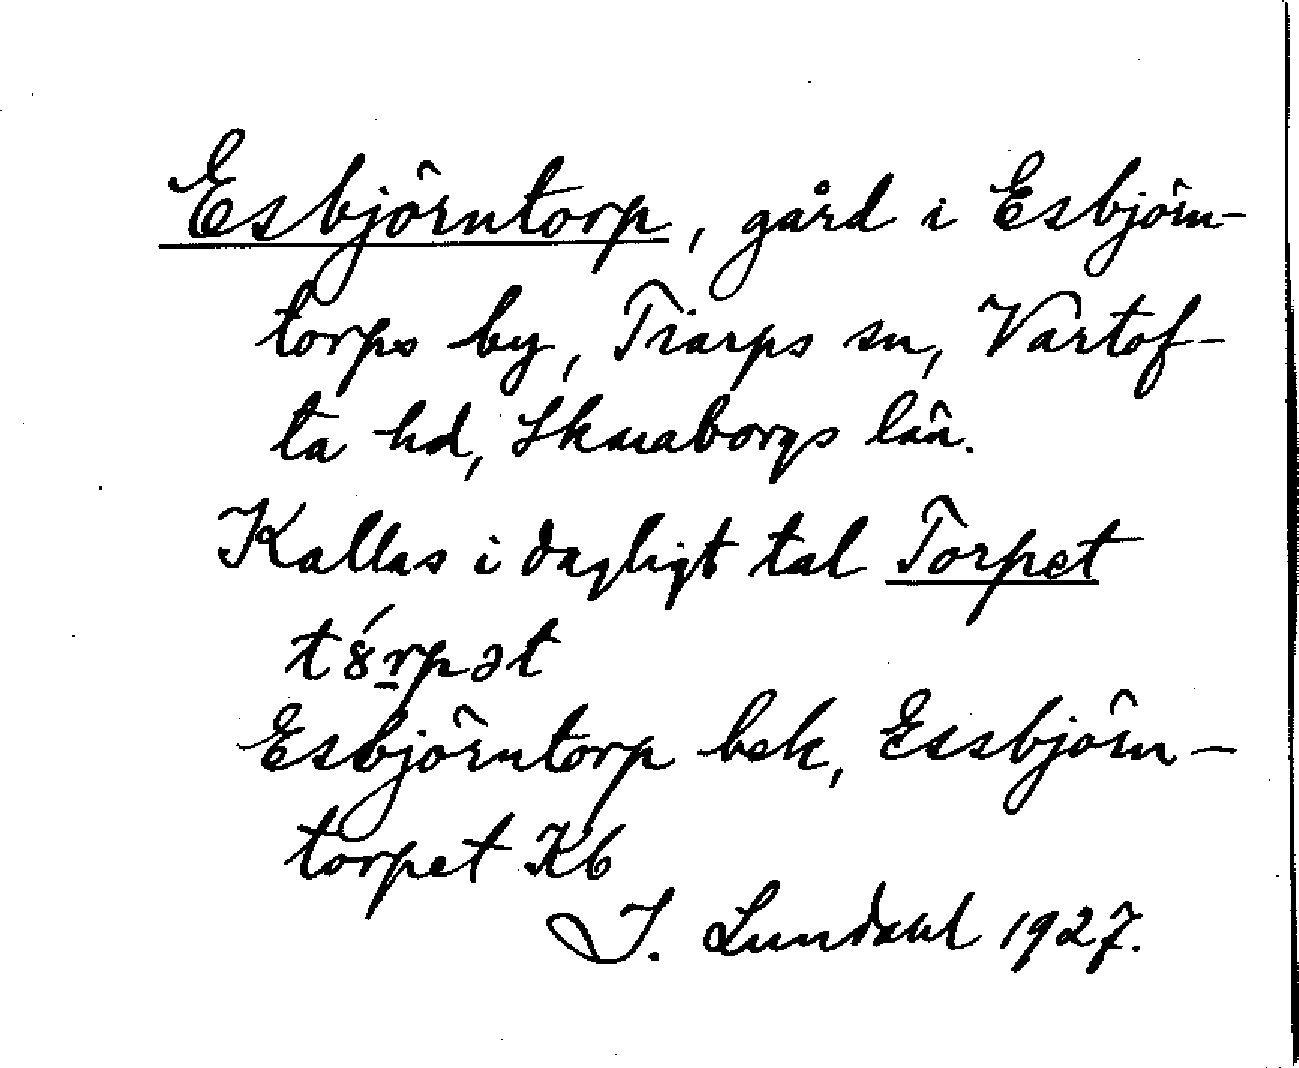 Esbjörntorp, gård i Esbjörn-
torps by, Tiarps sn, Vartof-
ta hd, Skaraborgs län.
Kallas i dagligt tal Torpet
t8́r̲pət
Esbjörntorp bek, Essbjörn-
torpet Kb
I. Lundahl 1927.